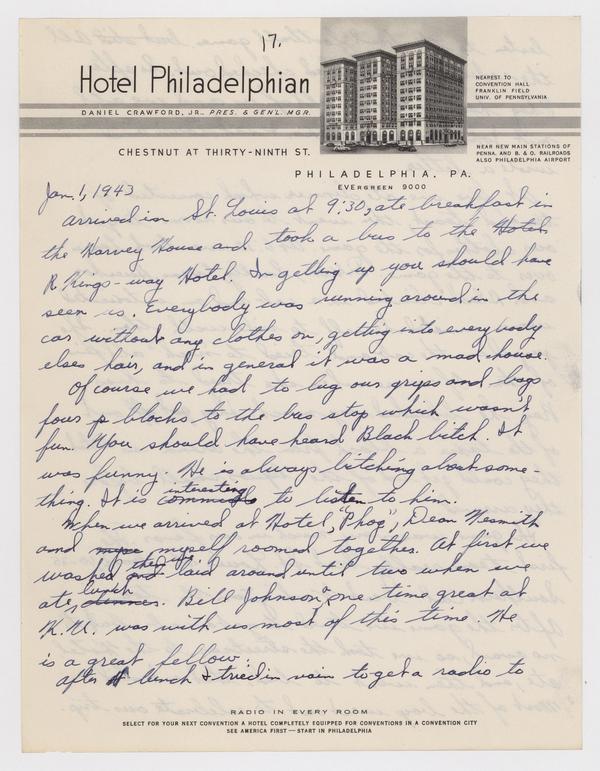 17.
Hotel Philadelphian
DANIEL CRAWFORD, JR., PRES. & GEN'L. MGR.
CHESTNUT AT THIRTY-NINTH ST.
NEAREST TO
CONVENTION HALL
FRANKLIN FIELD
UNIV. OF PENNSYLVANIA
NEAR NEW MAIN STATIONS OF
PENNA. AND B. & O. RAILROADS
ALSO PHILADELPHIA AIRPORT
PHILADELPHIA, PA.
EVERGREEN 9000
Jan. 1, 1943
arrived in St. Louis at 9:30, ate breakfast in
the Harvey House and took a bus to the Hotel
R Kings-way Hotel. In getting up you should have
seen us. Everybody was running around in the
car without any clothes on, getting into everybody
elses hair, and in general it was a mad house.
Of course we had to lug our grips and bags
four p blocks to the bus stop which wasn't
fun. You should have heard Black bitch. It
was funny. He is always bitching about some-
thing. It is interesting to listen to him.
When we arrived at Hotel, "Phog", Dean Nesmith
and myself roomed together. At first we
washed and laid around until two when we
ate lunch. Bill Johnson, a one time great at
K.U. was with us most of this time. He
is a great fellow.
After lunch I tried in vain to get a radio to
RADIO IN EVERY ROOM
SELECT FOR YOUR NEXT CONVENTION A HOTEL COMPLETELY EQUIPPED FOR CONVENTIONS IN A CONVENTION CITY
SEE AMERICA FIRST — START IN PHILADELPHIA